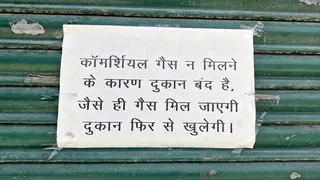 कॉमर्शियल गैस न मिलने
के कारण दुकान बंद है,
जैसे ही गैस मिल जाएगी
दुकान फिर से खुलेगी।